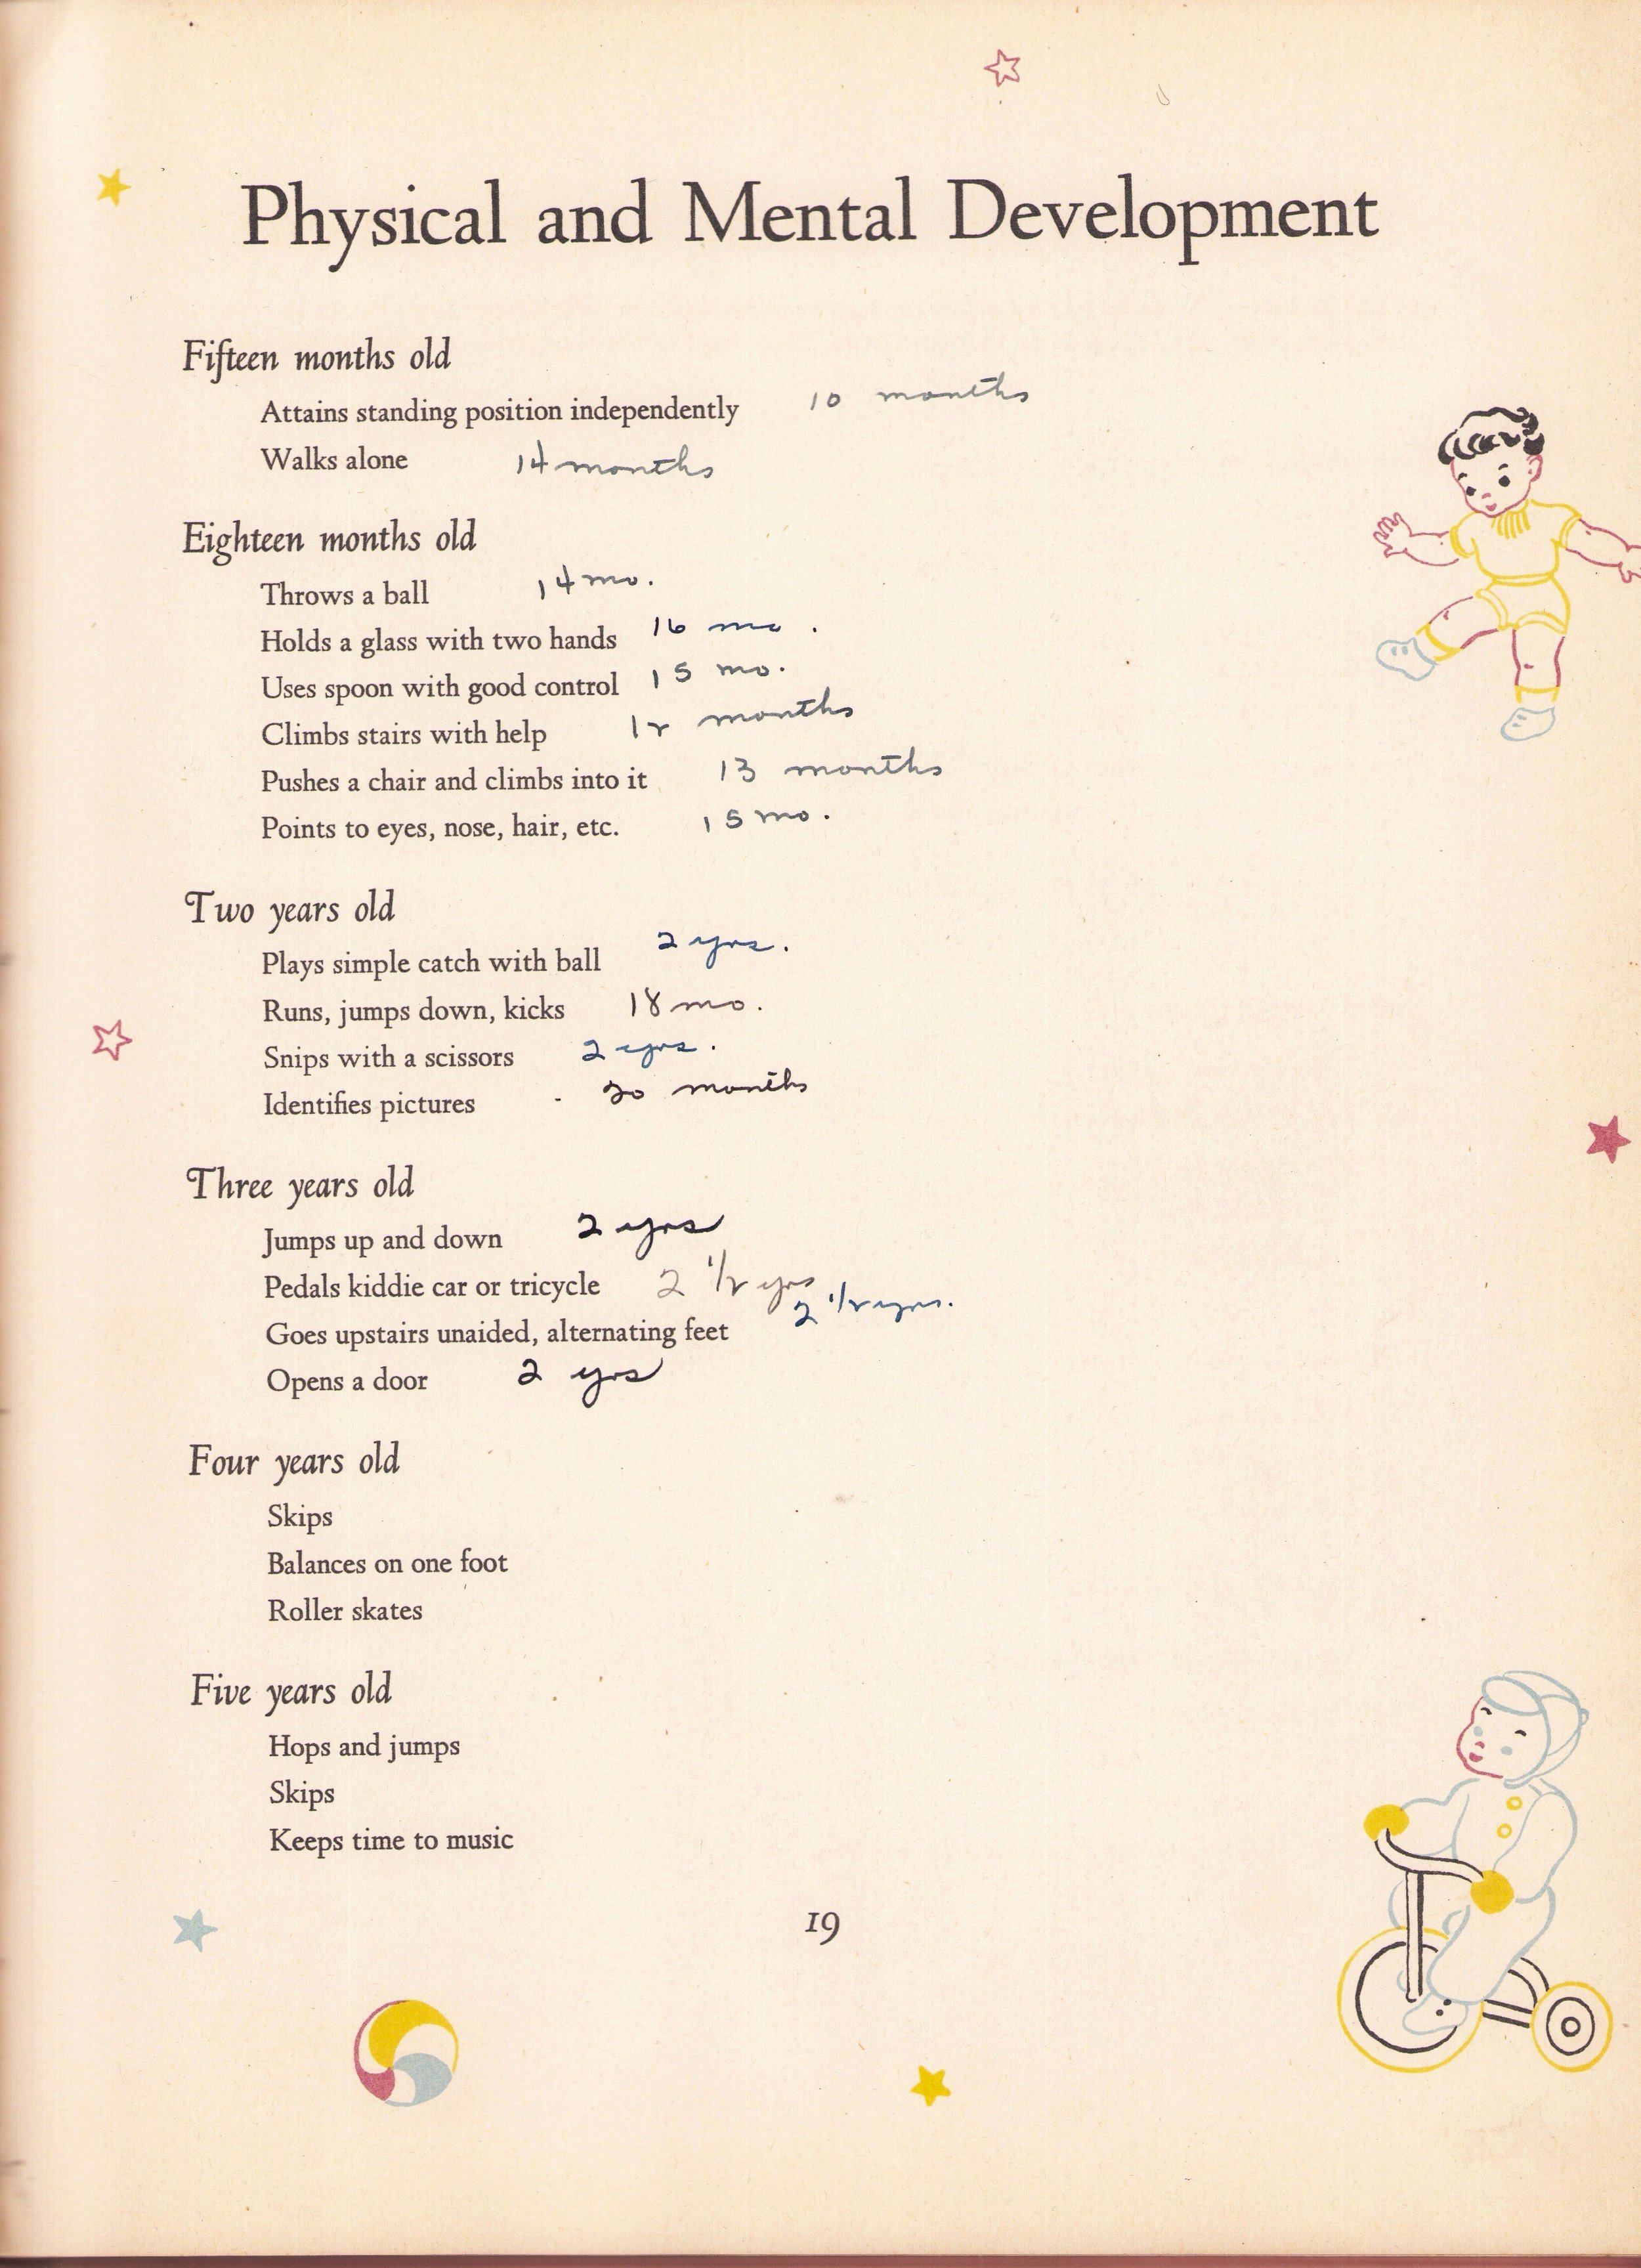 Physical and Mental Development
Fifteen months old
Attains standing position independently 10 months
Walks alone 14 months
Eighteen months old
Throws a ball 14 mo.
Holds a glass with two hands 16 mo.
Uses spoon with good control 15 mo.
Climbs stairs with help 12 months
Pushes a chair and climbs into it 13 months
Points to eyes, nose, hair, etc. 15 mo.
Two years old
Plays simple catch with ball 2 yrs.
Runs, jumps down, kicks 18 mo.
Snips with a scissors 2 yrs.
Identifies pictures - 20 months
Three years old
Jumps up and down 2 yrs
Pedals kiddie car or tricycle 2 1/2 yrs
Goes upstairs unaided, alternating feet 2 1/2 yrs.
Opens a door 2 yrs
Four years old
Skips
Balances on one foot
Roller skates
Five years old
Hops and jumps
Skips
Keeps time to music
19